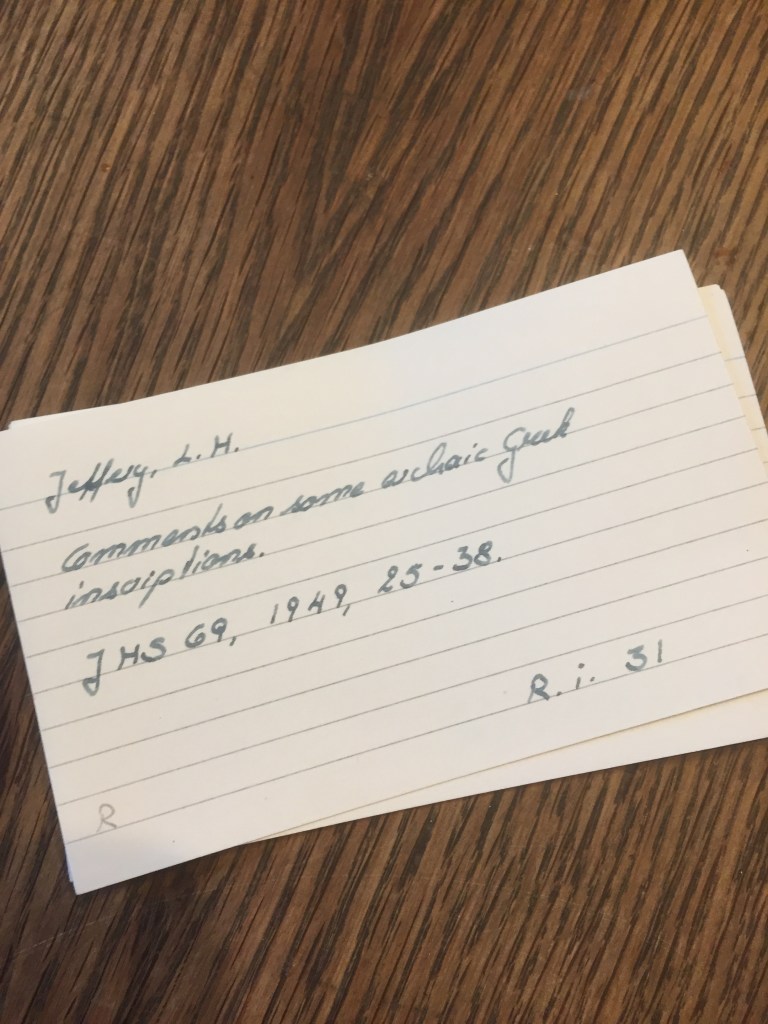 Jeffery, L.H.
Comments on some archaic Greek
inscriptions.
JHS 69, 1949, 25-38.
R.i. 31
R